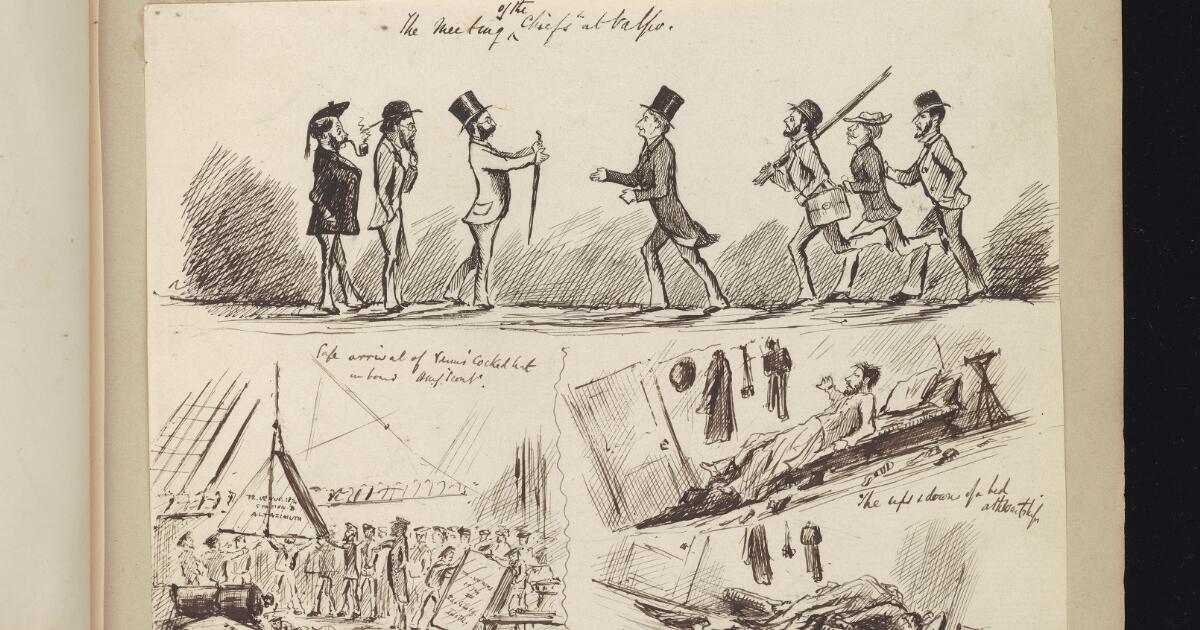 The Meeting of the "Chiefs" at Valpo.
Safe arrival of Venus' Cocked hat
on board
TR. VENUS. 18
STATION B
ALTAZIMUTH
The ups & downs of a bed
athwartships